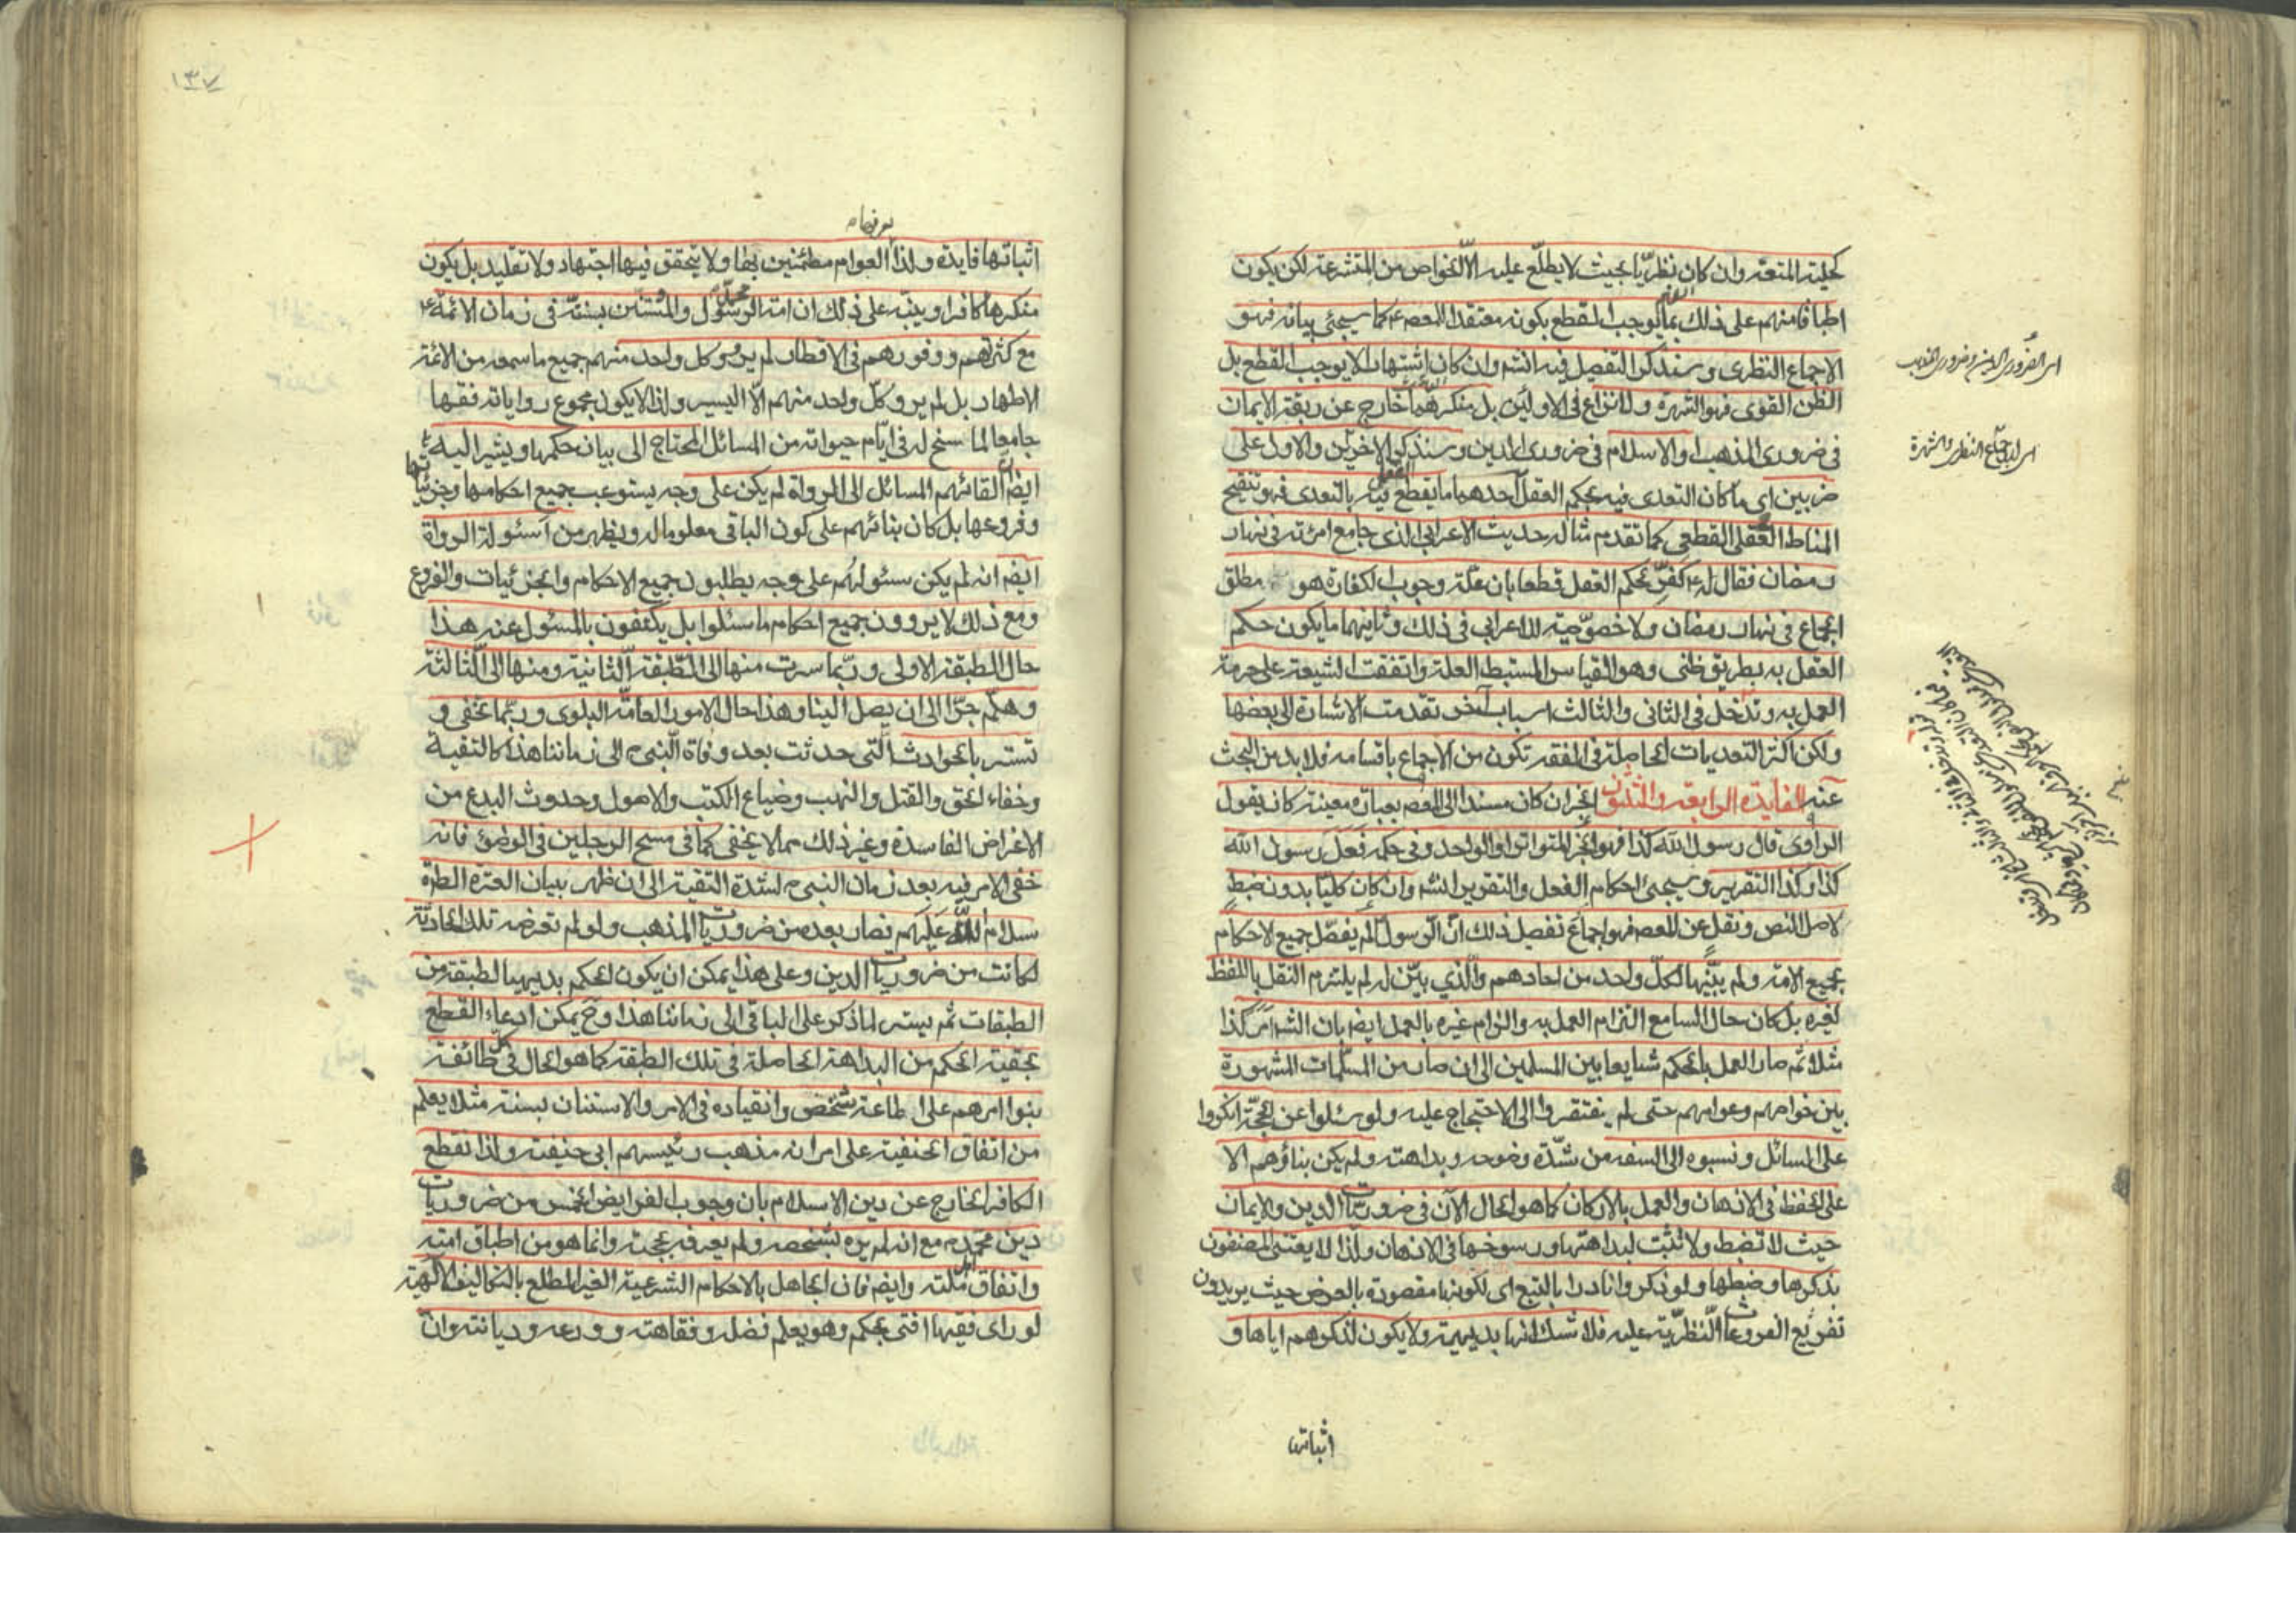 كحلية المتعة وان كان نظريّا بحيث لا يطلّع عليه الّا الخواص من المتشرعة لكن يكون
اطباقا منهم على ذلك بما يوجب القطع بكونه معتقدا للمعصوم ع كما سيجئ بيانه فهو
الاجماع النظرى وسنذكر التفصيل فيه انشه وان كان اشتهارا لا يوجب القطع بل
الظن القوى فهو الشهرة ولا نزاع فى الاوليّن بل منكرهما خارج عن ربقة الايمان
فى ضرورى المذهب او الاسلام فى ضرورى الدين وسنذكر الاخريّن والاول على
ضربين اى ما كان التعدى فيه بحكم العقل احدهما ما يقطع العقل فيه بالتعدى فهو تنقيح
المناط العقلى القطعى كما تقدم مثاله حديث الاعرابى الذى جامع امرئته فى نهار
رمضان فقال له ع كفّر بحكم العقل قطعا بان علة وجوب الكفارة هو مطلق
الجماع فى نهار رمضان ولا خصوصّية للاعرابى فى ذلك وثانيهما ما يكون حكم
العقل به بطريق ظنى وهو القياس المستبط العلة واتفقت الشيعة على حرمة
العمل به وتدخل فى الثانى والثالث اسباب آخر تقدمت الاشارة الى بعضها
ولكن اكثر التعديات الحاصلة فى الفقه تكون من الاجماع باقسامه فلا بد من البحث
عنه الفايدة الرابعة والثلثون الخبر ان كان مسندا الى المعصوم بعبارة معينة كان يقول
الراوى قال رسول الله كذا فهو الخبر المتواتر او الواحد وفى حكمه فَعَلَ رسول الله
كذا وكذا التقرير وسيجئ احكام الفعل والتقرير انشه وان كان كليّا بدون ضبط
لاصل النص ونقل عن المعصوم فهو اجماع تفصيل ذلك انّ الرّسول لم يفصّل جميع الاحكام
بجميع الامة ولم يبيّنها لكلّ واحد من احادهم والّذي بيّن له لم يلتزم النقل باللفظ
لغيره بل كان حال السامع التزام العمل به والزام غيره بالعمل ايضا بان الشه امر كذا
مثلا ثم صار العمل بالحكم شايعا بين المسلمين الى ان صار من المسلّمات المشهورة
بين خواصهم وعوامهم حتى لم يفتقروا الى الاحتجاج عليه ولو سئلوا عن الحجّة انكروا
على المسائل ونسبوه الى السفه من شدّة وضوحه وبداهته ولم يكن بناؤهم الا
على الحفظ فى الاذهان والعمل بالاركان كما هو الحال الآن فى ضروريات الدين والايمان
حيث لا تضبط ولا تثبّت لبداهتها ورسوخها فى الاذهان ولذا لا يعتنى المصنفون
بذكرها وضبطها ولو ذكروا نادرا بالتبع اى لكونها مقصودة بالعرض حيث يريدون
تفريع الفروعات النّظريّة عليه فلا شك انها بديهية ولا يكون لذكرهم اياها و
اثباتها
١٣٧
اثباتها فايدة ولذا العوام مطمئنين بها ولا يتحقق فيها اجتهاد ولا تقليد بل يكون
منكرها كافرا وينبّه على ذلك ان امة الرسول والمستنين بسنته فى زمان الائمة ع
مع كثرتهم ووفورهم فى الاقطار لم يرو كل واحد منهم جميع ما سمعه من الائمة
الاطهار بل لم يرو كلّ واحد منهم الّا اليسير ولذا لا يكون مجموع رواياته فقها
جامعا لما سنح له فى ايّام حيوته من المسائل المحتاج الى بيان حكمها ويشير اليه
ايضا ان القائهم المسائل الى الرواة لم يكن على وجه يستوعب جميع احكامها وجزئياتها
وفروعها بل كان بنائهم على كون الباقى معلوما له ويظهر من اسئولة الرواة
ايضا انه لم يكن سئولهم على وجه يطلبون جميع الاحكام والجزئيات والفروع
ومع ذلك لا يروون جميع احكام ما سئلوا بل يكتفون بالمسئول عنه هذا
حال الطبقة الاولى وربّما سرت منها الى الطّبقة الّثانية ومنها الى الّثالثة
وهلّم جرّا الى ان يصل الينا وهذا حال الامور العامّة البلوى وربّما تخفى و
تستر بالحوادث الّتى حدثت بعد وفاة النّبى ص الى زماننا هذا كالتقية
وخفاء الحق والقتل والنهب وضياع الكتب والاصول وحدوث البدع من
الاغراض الفاسدة وغير ذلك مما لا يخفى كما فى مسح الرجلين فى الوضوء فانه
خفى الامر فيه بعد زمان النبى ص لشدة التقية الى ان ظهر ببيان العترة الطاهرة
سلام الله عَلَيهم فصار بعده من ضروريات المذهب ولو لم تعرضه تلك الحادثة
لكانت من ضروريات الدين وعلى هذا يمكن ان يكون الحكم بديهيا لطبقة من
الطبقات ثم يستر لما ذكر على الباقى الى زماننا هذا وح يمكن ادعاء القطع
بحقية الحكم من البداهة الحاصلة فى تلك الطبقة كما هو الحال فى كل طائفة
بنوا امرهم على اطاعة شخص وانقياده فى الامر والاستنان بسنته مثلا يعلم
من اتفاق الحنفية على امر انه مذهب رئيسهم ابى حنيفة ولذا نقطع
الكافر الخارج عن دين الاسلام بان وجوب الفرايض الخمس من ضروريات
دين محمّد ص مع انه لم يره بشخصه ولم يعرفه بحجته وانما هو من اطباق امته
واتفاق اهل ملته وايضا فان الجاهل بالاحكام الشرعية الغير المطلع بالتكاليف الآلهية
لو راى فقيها افتى بحكم وهو يعلم فضله وفقاهته وورعه وديانته وان